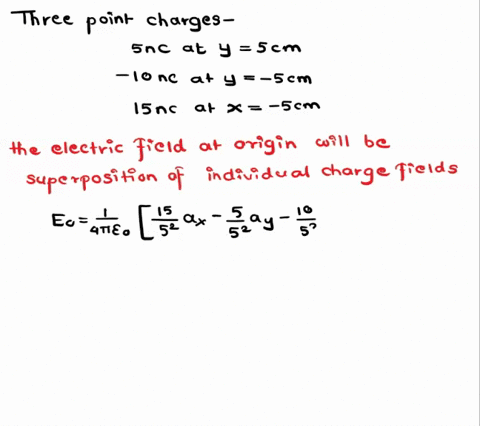 Three point charges-
5nc at y = 5cm
-10nc at y = -5cm
15nc at x = -5cm
the electric field at origin will be
superposition of individual charge fields
E₀ = 1/4πε₀ [15/5² ax - 5/5² ay - 10/5²